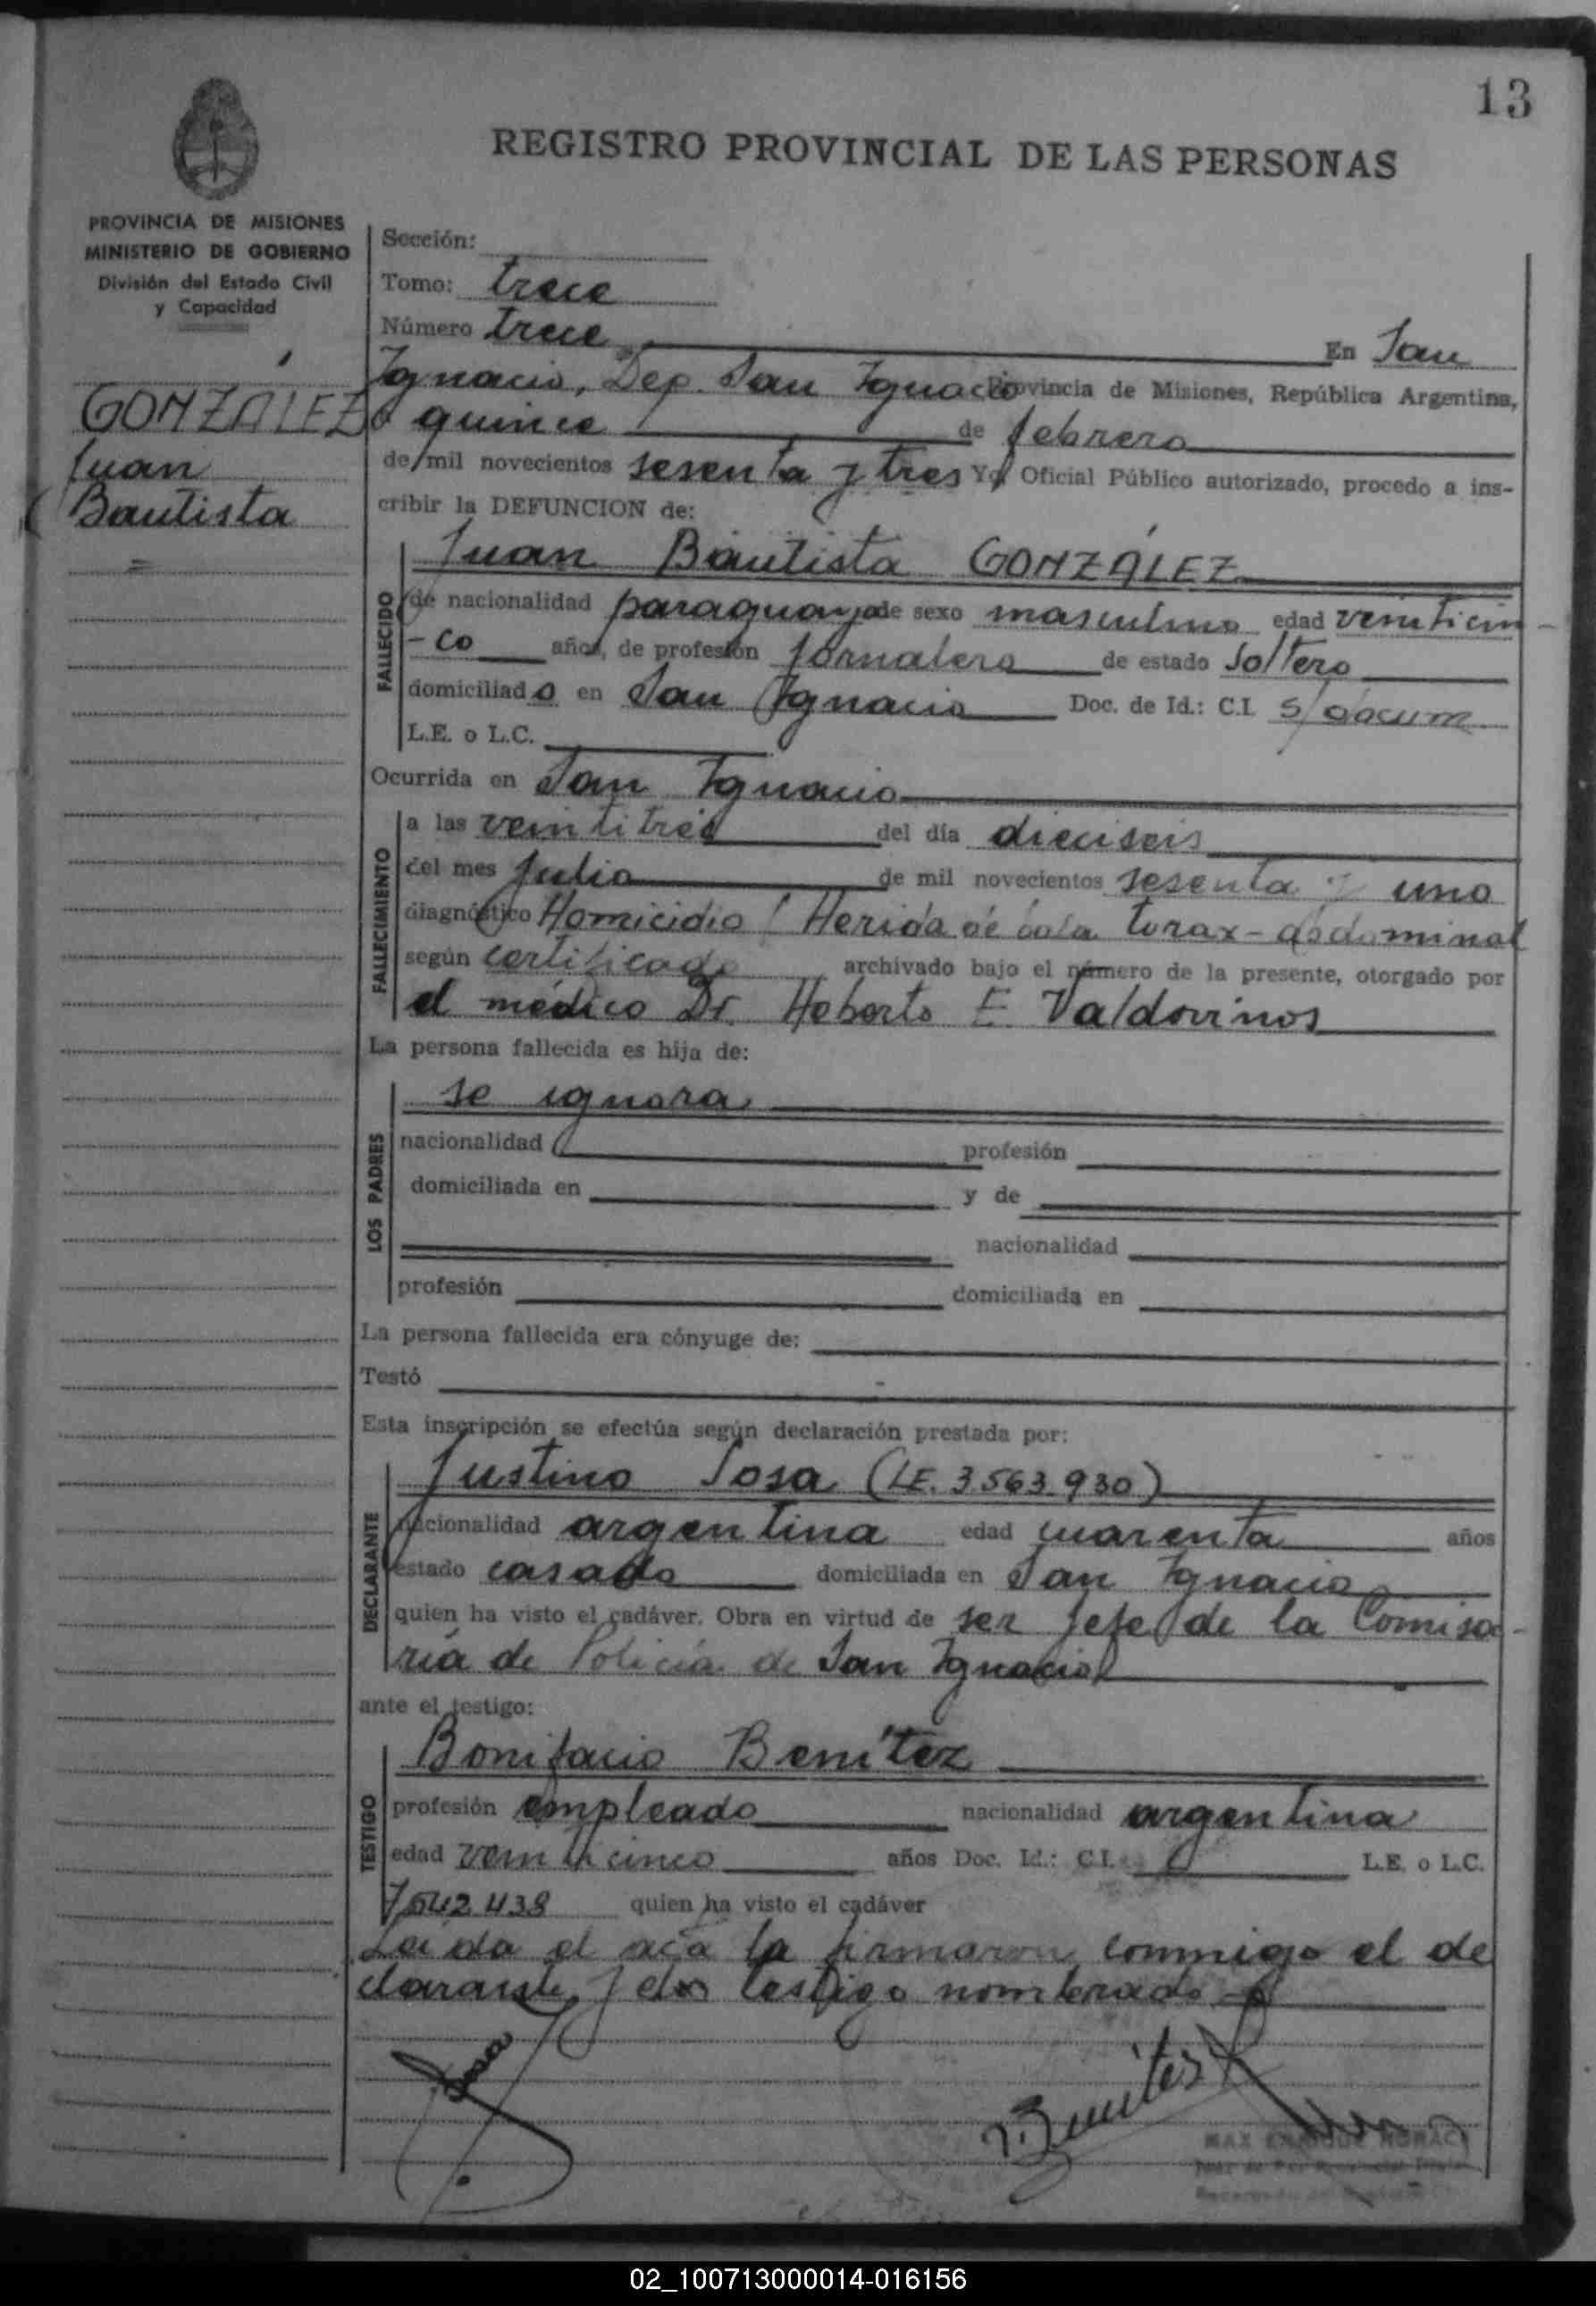 13
REGISTRO PROVINCIAL DE LAS PERSONAS
PROVINCIA DE MISIONES
MINISTERIO DE GOBIERNO
División del Estado Civil
y Capacidad
GONZÁLEZ
Juan
Bautista
Sección:
Tomo: trece
Número trece En San
Ignacio, Dep. San Ignacio Provincia de Misiones, República Argentina,
a quince de febrero
de mil novecientos sesenta y tres Yo, Oficial Público autorizado, procedo a ins-
cribir la DEFUNCION de:
Juan Bautista GONZÁLEZ
FALLECIDO
de nacionalidad paraguaya de sexo masculino edad veinticin-
-co años, de profesión jornalero de estado soltero
domiciliado en San Ignacio Doc. de Id.: C.I. s/docum
L.E. o L.C.
Ocurrida en San Ignacio
FALLECIMIENTO
a las veintitrés del día dieciseis
del mes julio de mil novecientos sesenta y uno
diagnóstico Homicidio / Herida de bala torax-abdominal
según certificado archivado bajo el número de la presente, otorgado por
el médico Dr. Heberto E. Valdovinos
La persona fallecida es hija de:
LOS PADRES
se ignora
nacionalidad profesión
domiciliada en y de
nacionalidad
profesión domiciliada en
La persona fallecida era cónyuge de:
Testó
Esta inscripción se efectúa según declaración prestada por:
DECLARANTE
Justino Sosa (LE. 3.563.930)
nacionalidad argentina edad cuarenta años
estado casado domiciliada en San Ignacio
quien ha visto el cadáver. Obra en virtud de ser Jefe de la Comisa-
ría de Policía de San Ignacio
ante el testigo:
TESTIGO
Bonifacio Benítez
profesión empleado nacionalidad argentina
edad veinticinco años Doc. Id.: C.I. L.E. o L.C.
7542438 quien ha visto el cadáver
Leida el acta la firmaron conmigo el de
clarante y el testigo nombrado
Sosa
B. Benitez
MAX ENRIQUE
02_100713000014-016156